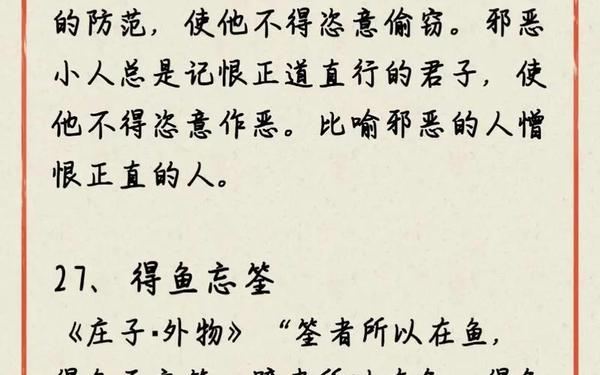 的防范，使他不得恣意偷窃。邪恶
小人总是记恨正道直行的君子，使
他不得恣意作恶。比喻邪恶的人憎
恨正直的人。
27、得鱼忘筌
《庄子·外物》“筌者所以在鱼，